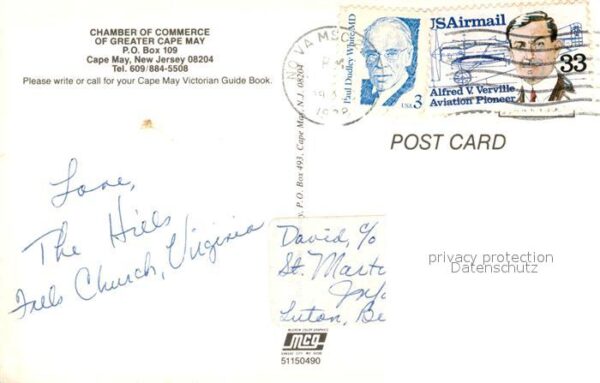 CHAMBER OF COMMERCE
OF GREATER CAPE MAY
P.O. Box 109
Cape May, New Jersey 08204
Tel. 609/884-5508
Please write or call for your Cape May Victorian Guide Book.
NOVA MSC
Paul Dudley White MD
USA 3
USAirmail
33
Alfred V. Verville
Aviation Pioneer
POST CARD
P.O. Box 493, Cape May, N.J. 08204
Love,
The Hills
Falls Church, Virginia
David, c/o
St. Mart
Luton, Be
privacy protection
Datenschutz
mcg
51150490